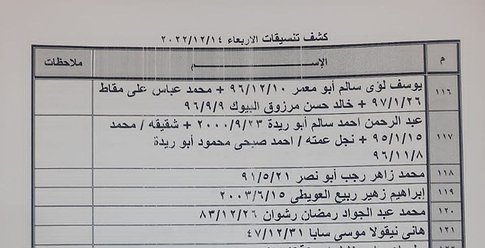 كشف تنسيقات الاربعاء ٢٠٢٢/١٢/١٤
م الإســـم ملاحظات
١١٦ يوسف لؤى سالم أبو معمر ٩٦/١٢/١٠ + محمد عباس على مقاط
٩٧/١/٢٦ + خالد حسن مرزوق البيوك ٩٦/٩/٩
١١٧ عبد الرحمن احمد سالم أبو ريدة ٢٠٠٠/٩/٢٣ + شقيقه / محمد
٩٥/١/١٥ + نجل عمته / احمد صبحى محمود أبو ريدة
٩٦/١١/٨
١١٨ محمد زاهر رجب أبو نصر ٩١/٥/٢١
١١٩ إبراهيم زهير ربيع العويطى ٢٠٠٣/٦/١٥
١٢٠ محمد عبد الجواد رمضان رشوان ٨٣/١٢/٢٦
١٢١ هانى نيقولا موسى سابا ٤٧/١٢/٣١